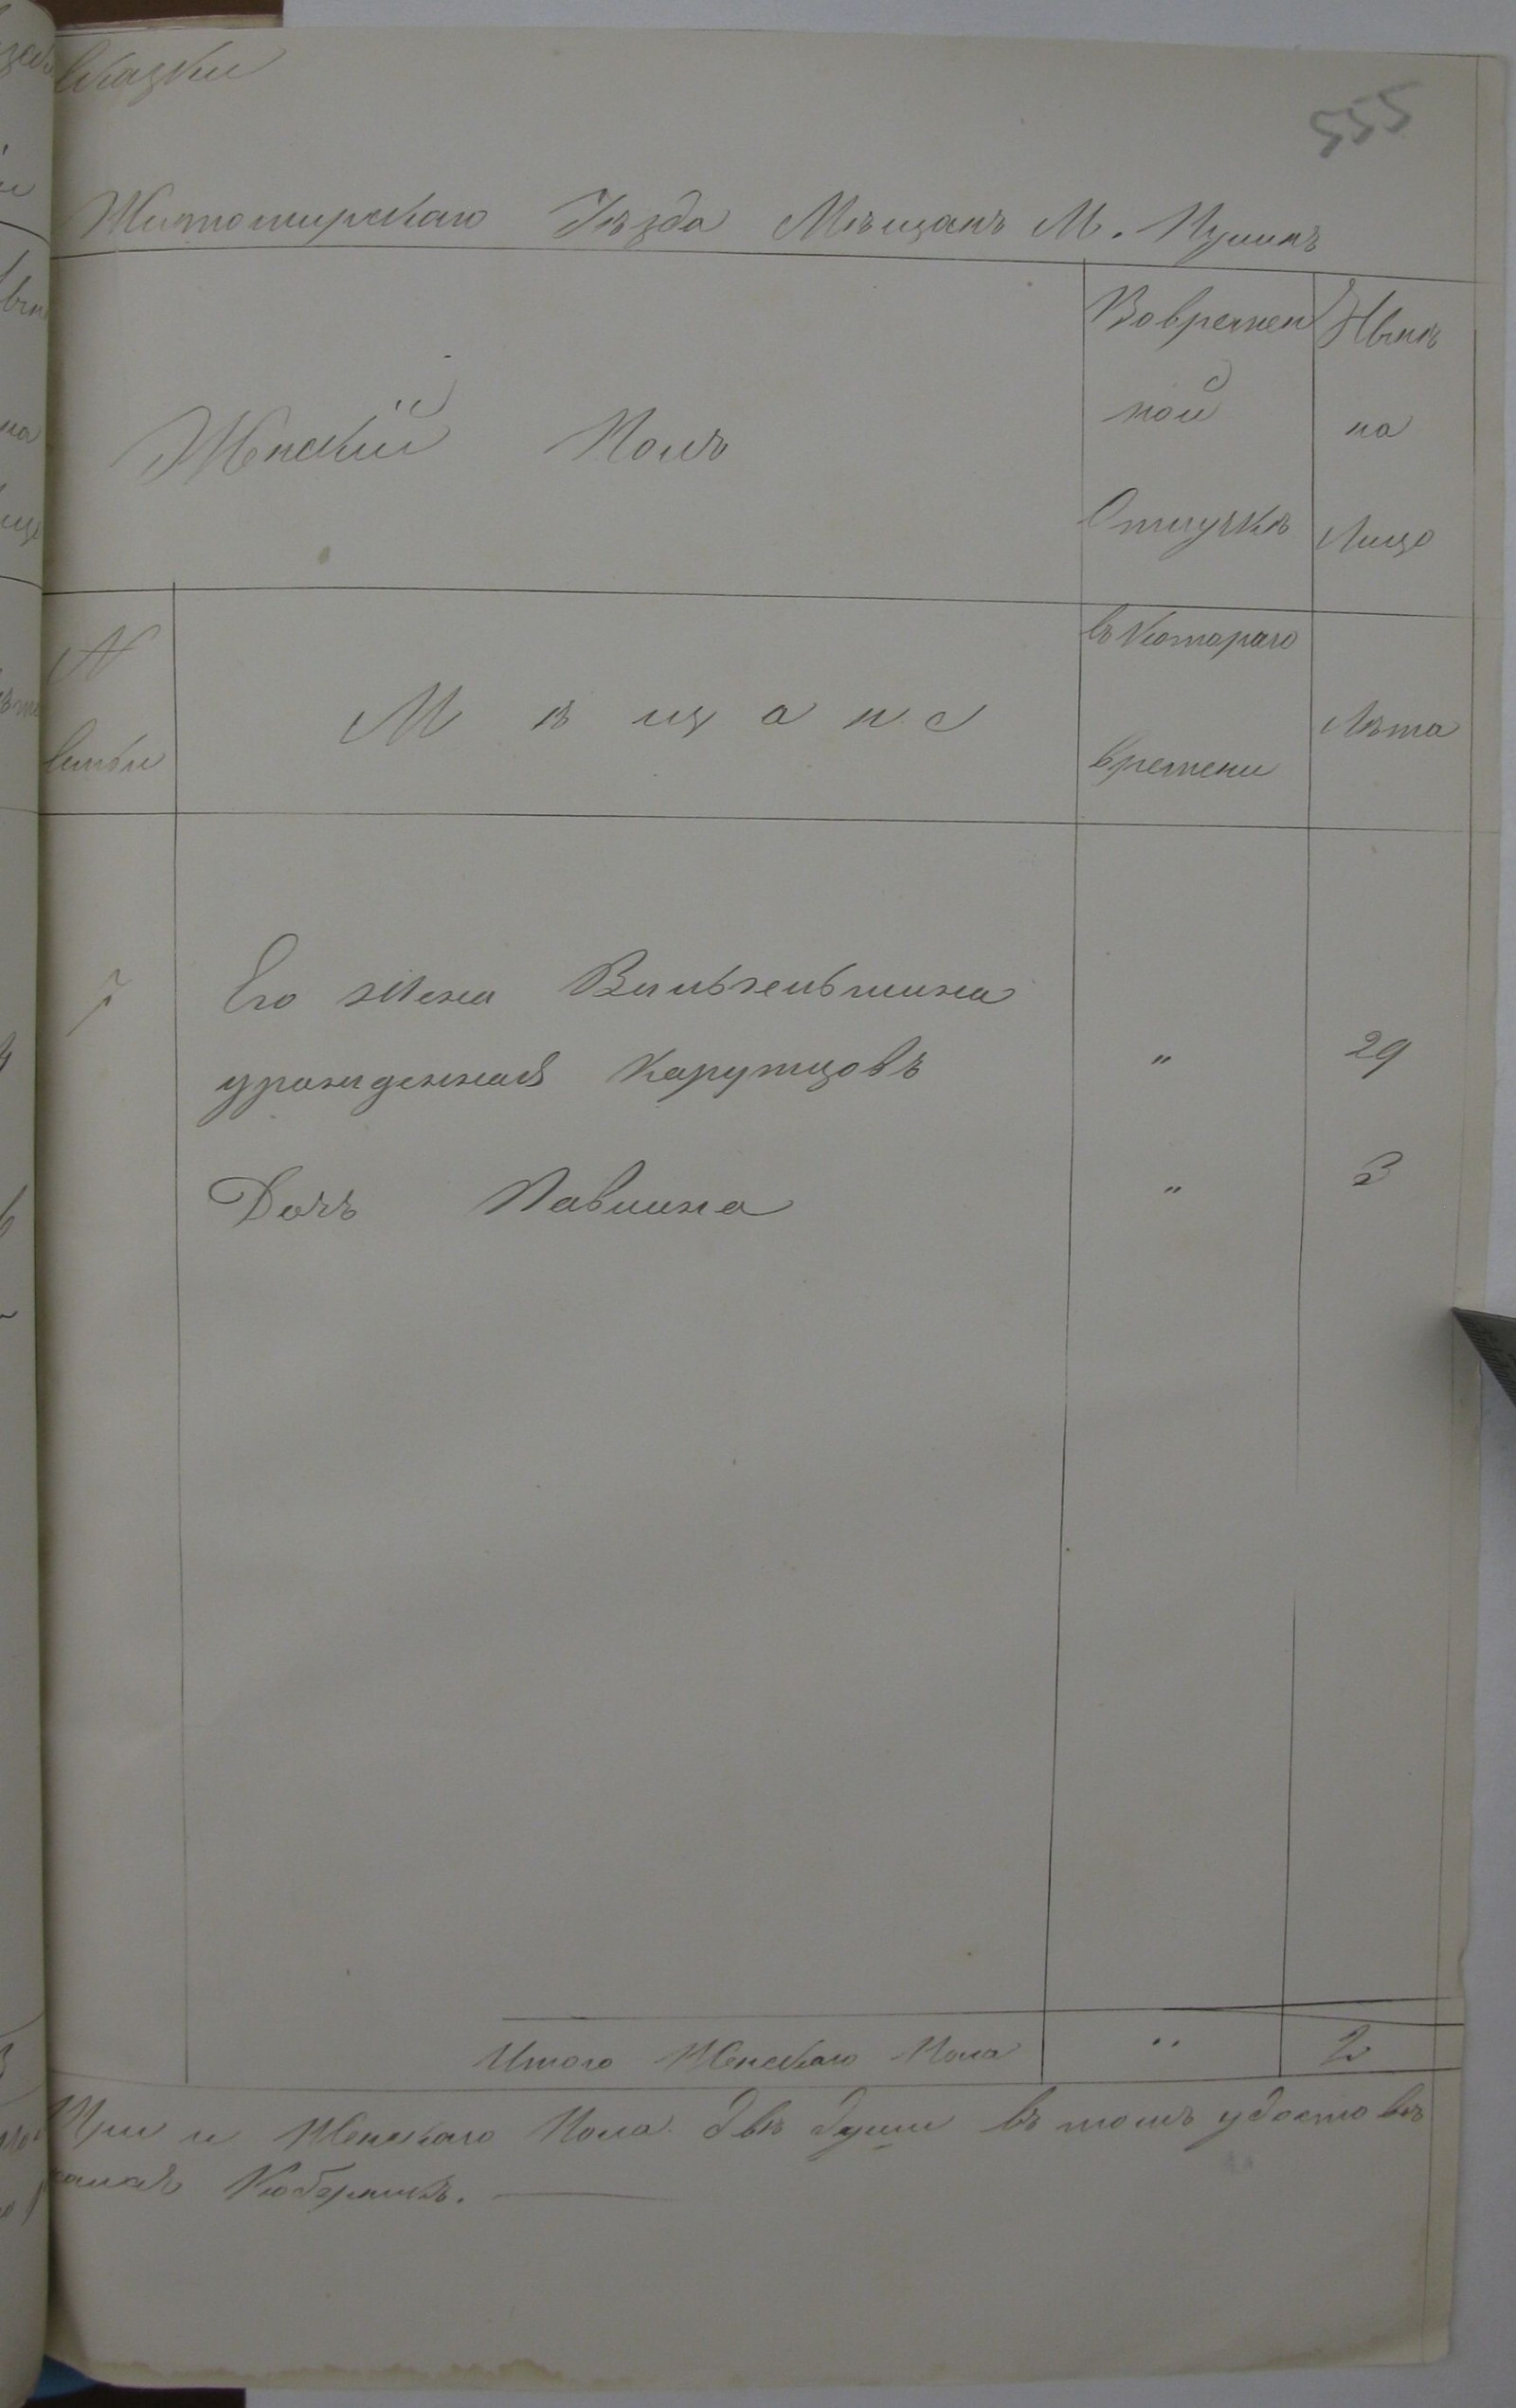 сказки
555
Житомирскаго Уѣзда Мѣщанъ М. Пулинъ
Женскій Полъ
Вовремен
ной
Отлучкѣ
Нынѣ
на
Лицо
N
семьи
Мѣщане
съ Котораго
времени
Лѣта
7
Его жена Вильгельмина
урожденная Карутцовъ
"
29
Дочъ Павлина
"
3
Итого Женскаго Пола
"
2
Три и Женскаго Пола двѣ души въ томъ удостовѣ